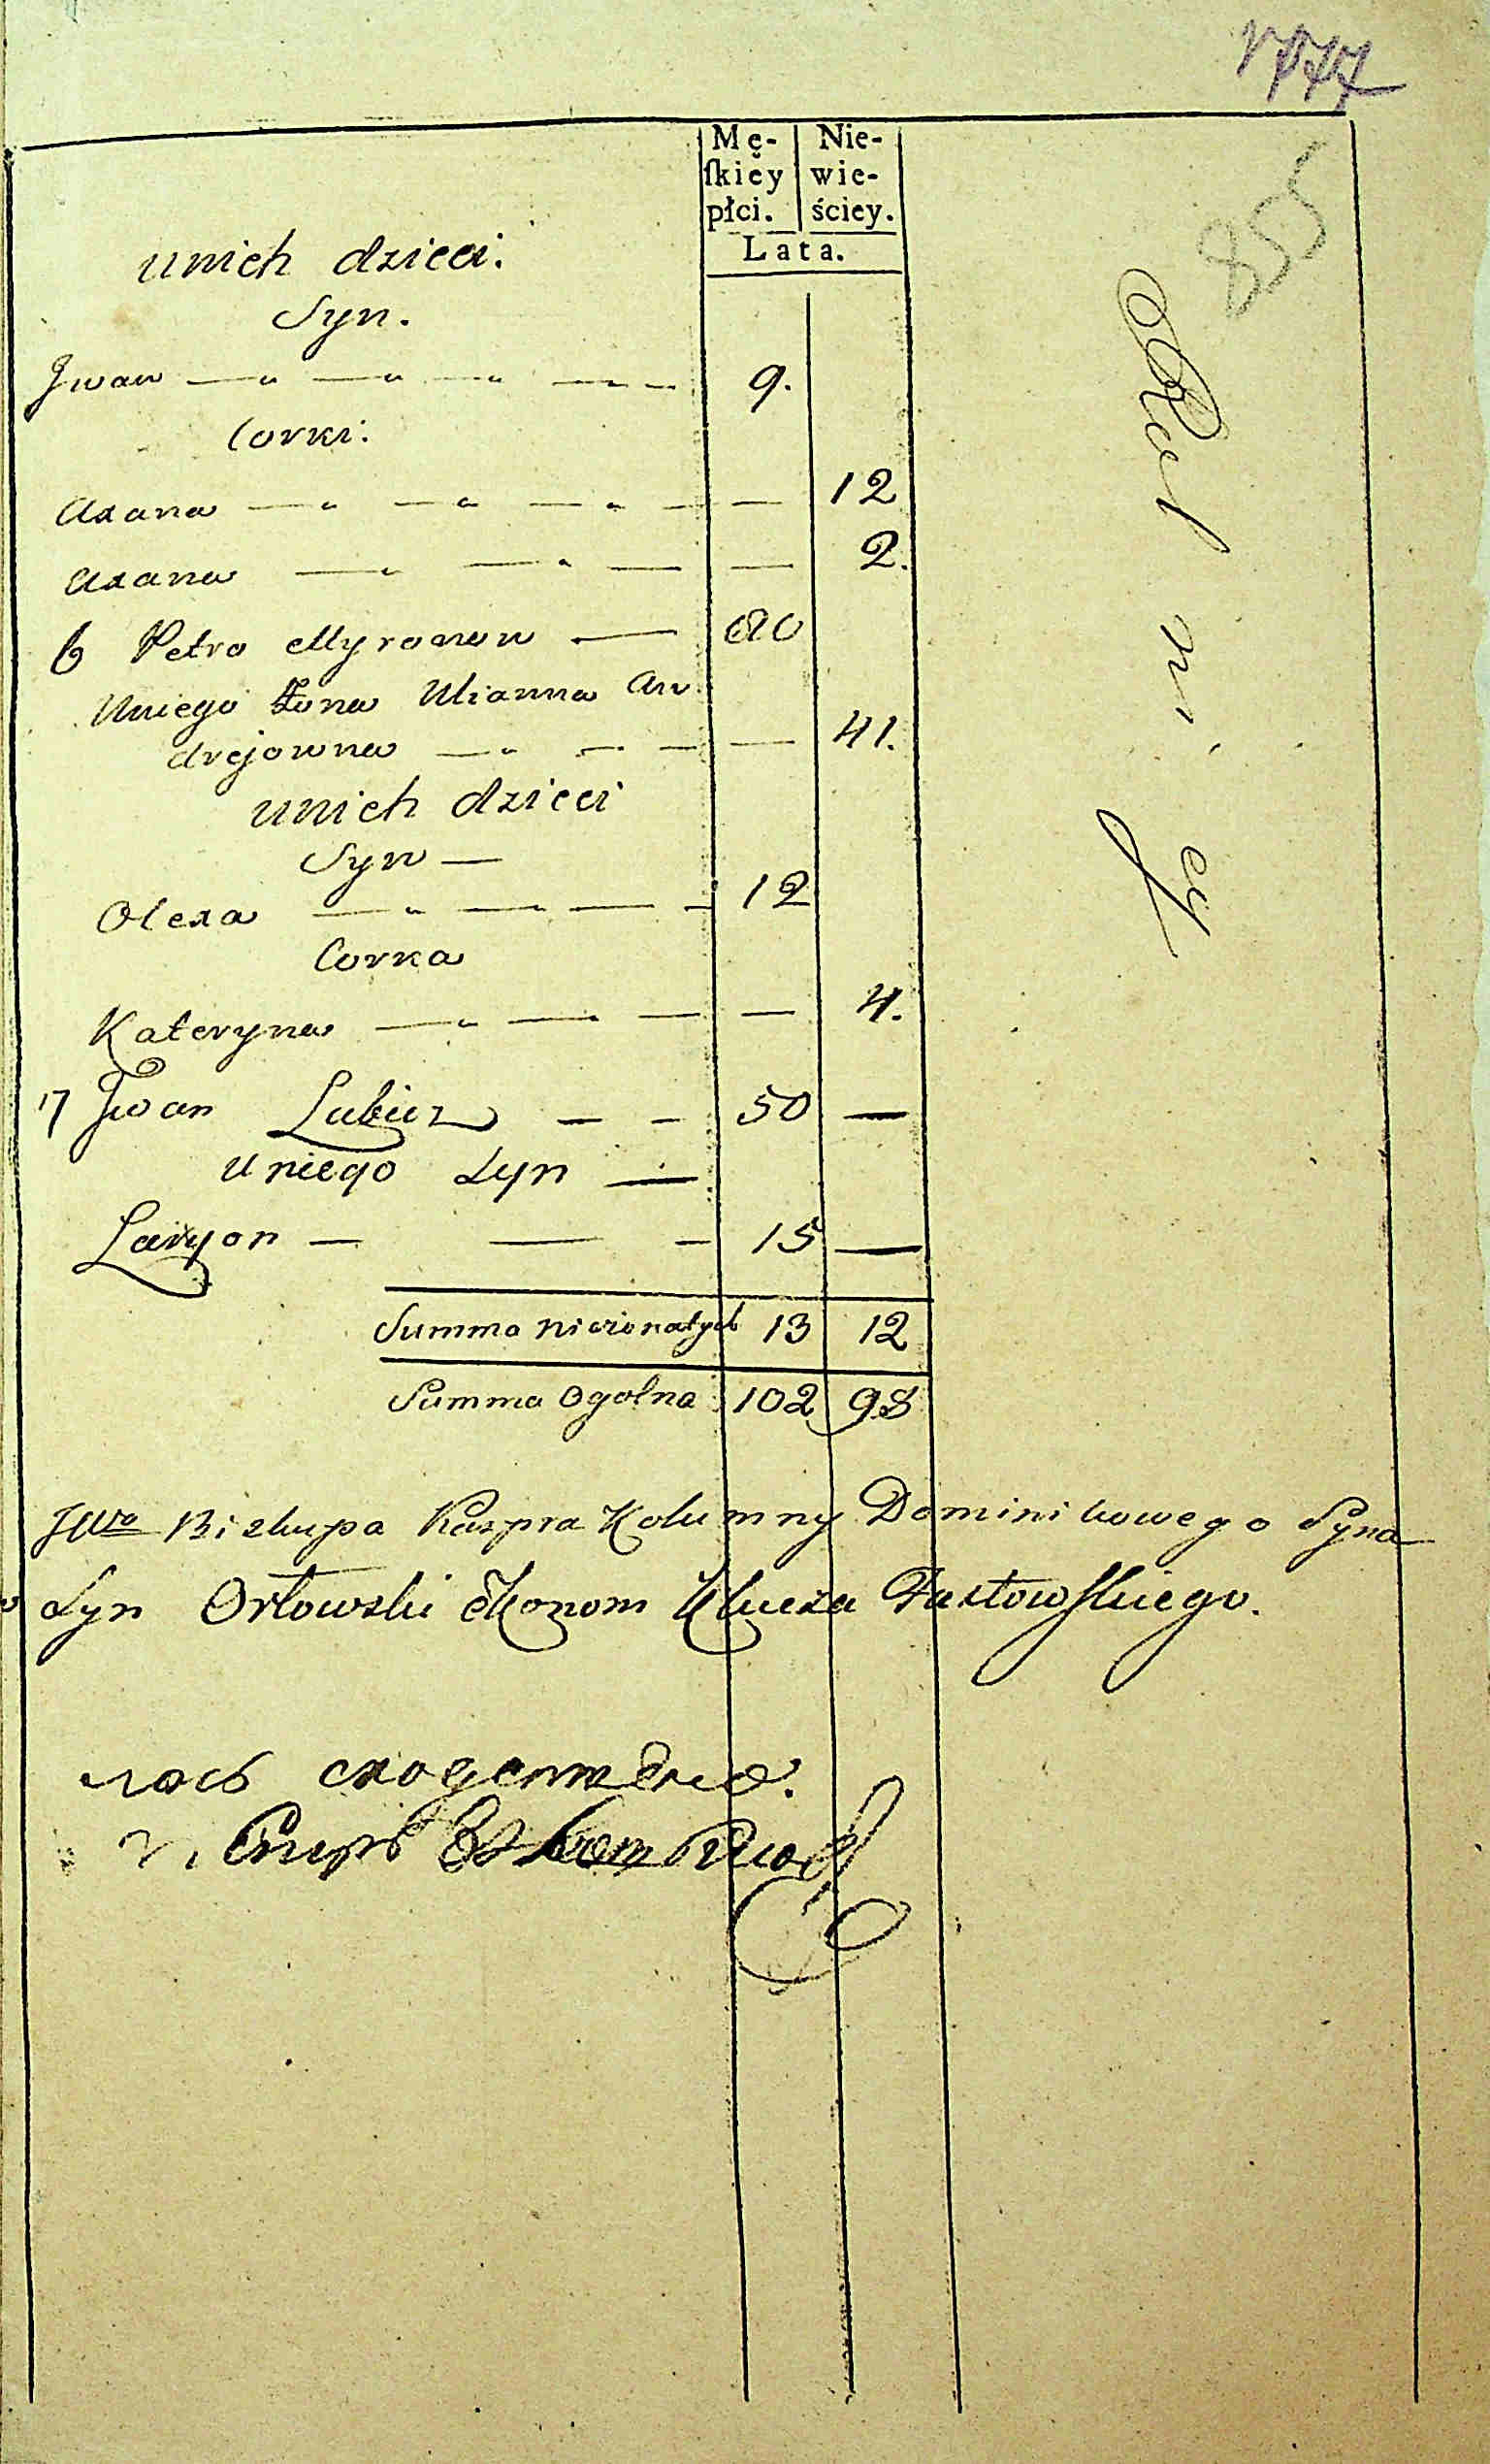 855
Mę-
ſkiey
płci.
Nie-
wie-
ściey.
Lata.
unich dzieci.
Syn.
Jwan 9.
Corki.
Axana 12
Axana 2.
6 Petro Myronow
Uniego Żona Ulianna An
drejowna 41.
unich dzieci
Syn
Olexa 12
Corka
Kateryna 4.
17 Jwan 50
u niego Syn
Laryon 15
Summa 13 12
Summa Ogolna 102 98
Rolniey
JWo Biskupa Kaspra Kolumny Dominikowego Syna
Syn Orłowski Ekonom Klucza Fastowskiego.